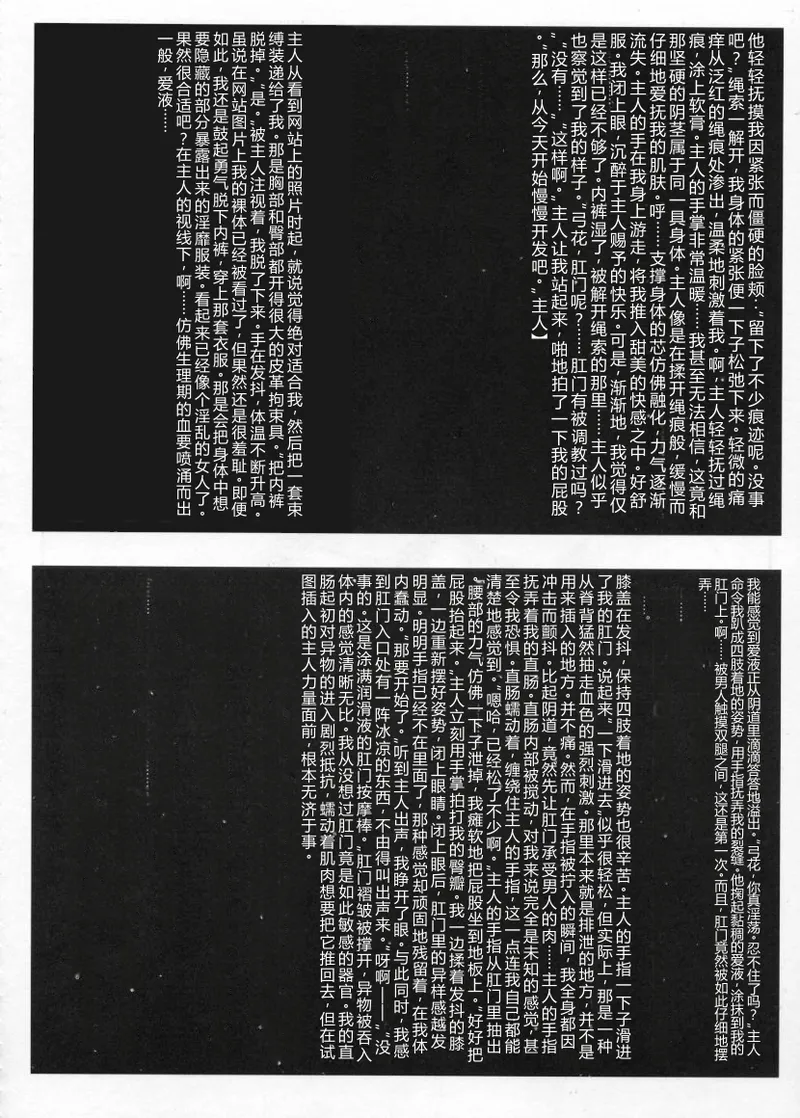 他轻轻抚摸我因紧张而僵硬的脸颊：“留下了不少痕迹呢。没事
吧？”绳索一解开，我身体的紧张便一下子松弛下来。轻微的痛
痒从泛红的绳痕处渗出，温柔地刺激着我。啊，主人轻轻抚过绳
痕，涂上软膏。主人的手掌非常温暖……我甚至无法相信，这竟和
那坚硬的阴茎属于同一具身体。主人像是在揉开绳痕般，缓慢而
仔细地爱抚我的肌肤。呼……支撑身体的芯仿佛融化，力气逐渐
流失。主人的手在我身上游走，将我推入甜美的快感之中。好舒
服。我闭上眼，沉醉于主人赐予的快乐。可是，渐渐地，我觉得仅
是这样已经不够了。内裤湿了，被解开绳索的那里……主人似乎
也察觉到了我的样子。“弓花，肛门呢？……肛门有被调教过吗？
”“没有……”“这样啊。”主人让我站起来，啪地拍了一下我的屁股
。“那么，从今天开始慢慢开发吧。”主人】
主人从看到网站上的照片时起，就说觉得绝对适合我，然后把一套束
缚装递给了我。那是胸部和臀部都开得很大的皮革拘束具。“把内裤
脱掉。”“是。”被主人注视着，我脱了下来。手在发抖，体温不断升高。
虽说在网站图片上我的裸体已经被看过了，但果然还是很羞耻。即便
如此，我还是鼓起勇气脱下内裤，穿上那套衣服。那是会把身体中想
要隐藏的部分暴露出来的淫靡服装。看起来已经像个淫乱的女人了。
果然很合适吧？在主人的视线下，啊……仿佛生理期的血要喷涌而出
一般，爱液……
我能感觉到爱液正从阴道里滴滴答答地溢出。“弓花，你真淫荡。忍不住了吗？”主人
命令我趴成四肢着地的姿势，用手指抚弄我的裂缝。他掬起黏稠的爱液，涂抹到我的
肛门上。啊……被男人触摸双腿之间，这还是第一次。而且，肛门竟然被如此仔细地摆
弄……
膝盖在发抖，保持四肢着地的姿势也很辛苦。主人的手指一下子滑进
了我的肛门。说起来“一下滑进去”似乎很轻松，但实际上，那是一种
从脊背猛然抽走血色的强烈刺激。那里本来就是排泄的地方，并不是
用来插入的地方。并不痛。然而，在手指被拧入的瞬间，我全身都因
冲击而颤抖。比起阴道，竟然先让肛门承受男人的肉……主人的手指
抚弄着我的直肠。直肠内部被搅动，对我来说完全是未知的感觉，甚
至令我恐惧。直肠蠕动着，缠绕住主人的手指，这一点连我自己都能
清楚地感觉到。“嗯哈，已经松了不少啊。”主人的手指从肛门里抽出
。“腰部的力气仿佛一下子泄掉，我瘫软地把屁股坐到地板上。”“好好把
屁股抬起来。”主人立刻用手掌拍打我的臀瓣。我一边揉着发抖的膝
盖，一边重新摆好姿势，闭上眼睛。闭上眼后，肛门里的异样感越发
明显。明明手指已经不在里面了，那种感觉却顽固地残留着，在我体
内蠢动。“那要开始了。”听到主人出声，我睁开了眼。与此同时，我感
到肛门入口处有一阵冰凉的东西，不由得叫出声来。“呀啊——”“没
事的。这是涂满润滑液的肛门按摩棒。”肛门褶皱被撑开，异物被吞入
体内的感觉清晰无比。我从没想过肛门竟是如此敏感的器官。我的直
肠起初对异物的进入剧烈抵抗，蠕动着肌肉想要把它推回去，但在试
图插入的主人力量面前，根本无济于事。